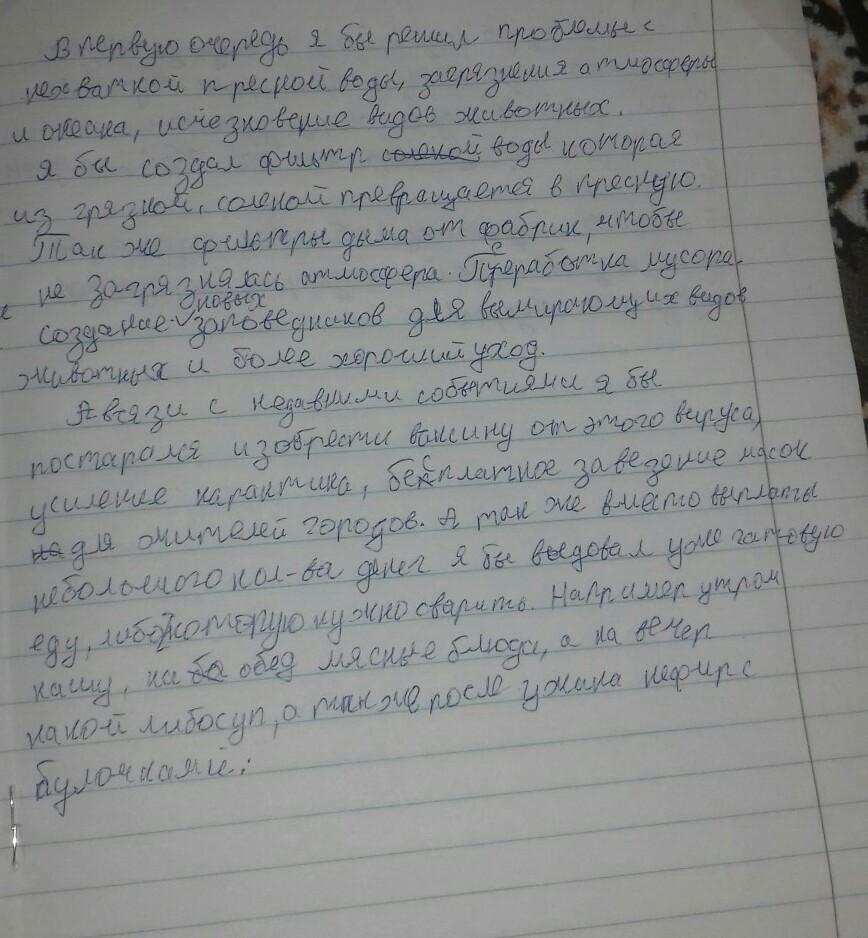 В первую очередь я бы решил проблемы с
нехваткой пресной воды, загрязнения атмосферы
и океана, исчезновение видов животных.
я бы создал фильтр соленой воды которая
из грязной, соленой превращается в пресную.
Так же фильтры дыма от фабрик, чтобы
не загрязнялась атмосфера. Переработка мусора,
создание новых заповедников для вымирающих видов
животных и более хороший уход.
А в связи с недавними событиями я бы
постарался изобрести вакцину от этого вируса,
усиление карантика, бесплатное заведение масок
на для жителей городов. А так же вместо выплаты
небольшого кол-ва денег я бы выдовал уже гатовую
еду, либо которую нужно сварить. Например утром
кашу, на бо обед мясные блюда, а на вечер
какой либо суп, а так же после ужина кефир с
булочками.